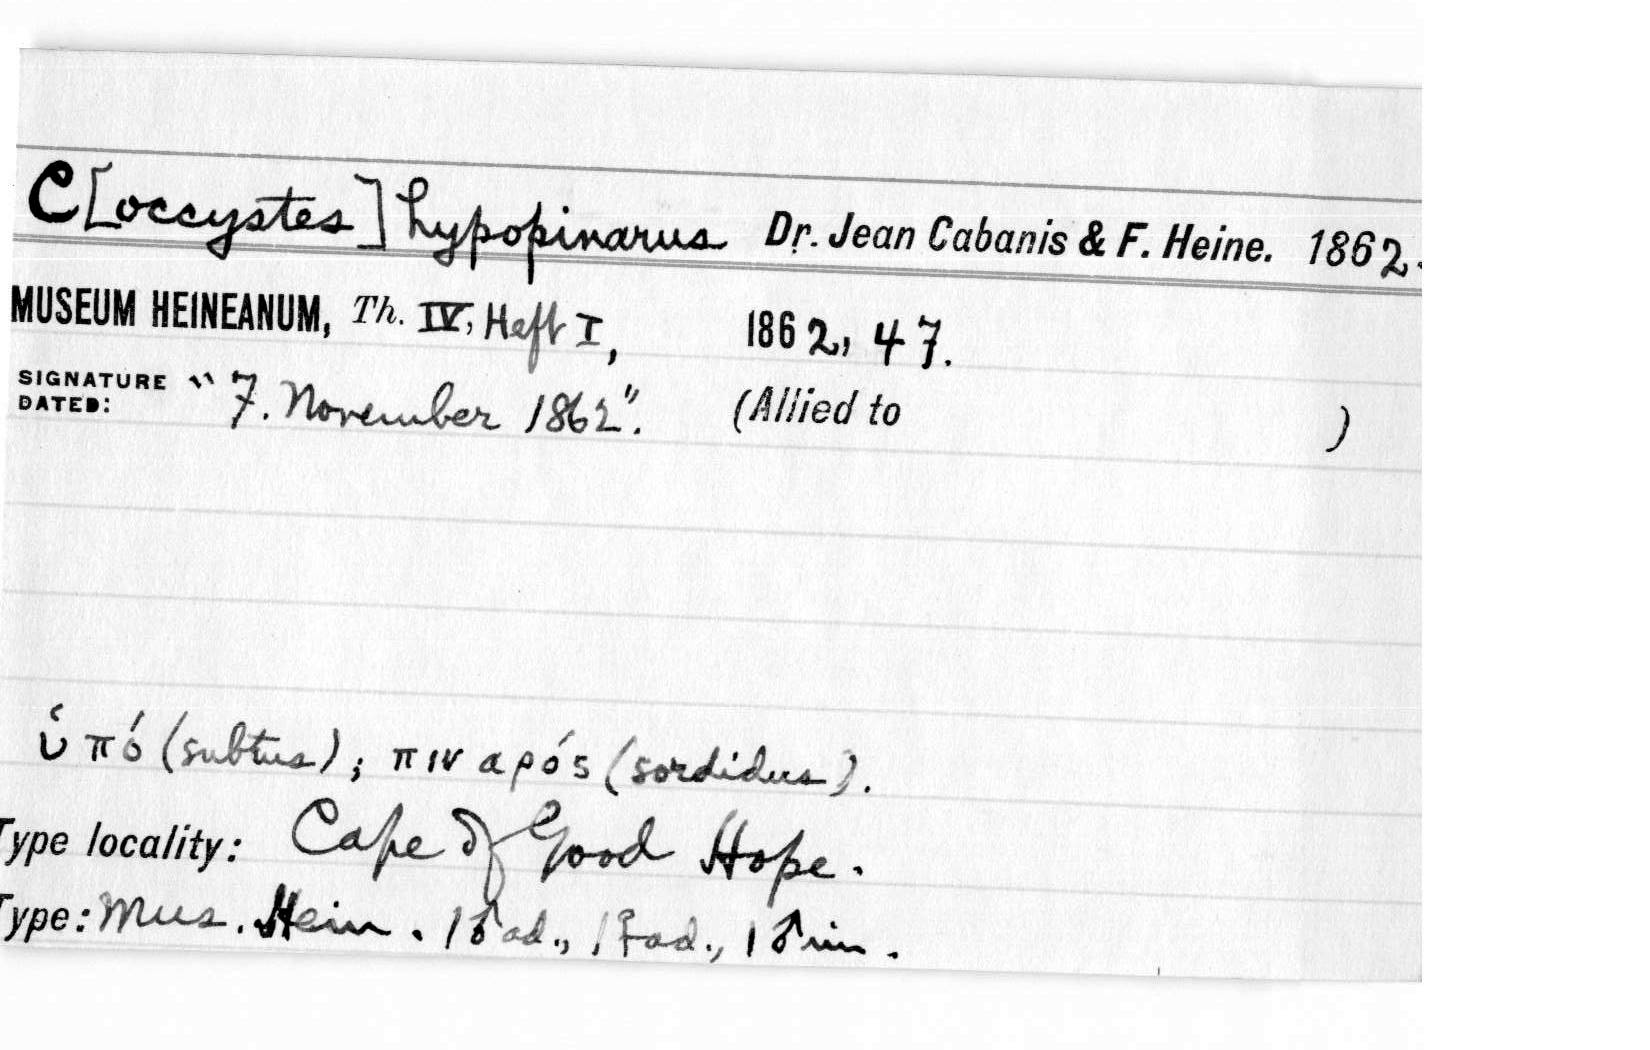 C[occystes] hypopinarus Dr. Jean Cabanis & F. Heine. 1862.
MUSEUM HEINEANUM, Th. IV, Heft I, 1862, 47.
SIGNATURE DATED: "7. November 1862". (Allied to )
ὑπό (subtus); πιναρός (sordidus).
Type locality: Cape of Good Hope.
Type: Mus. Hein. 1 ♂ ad., 1 ♀ ad., 1 ♂ im.